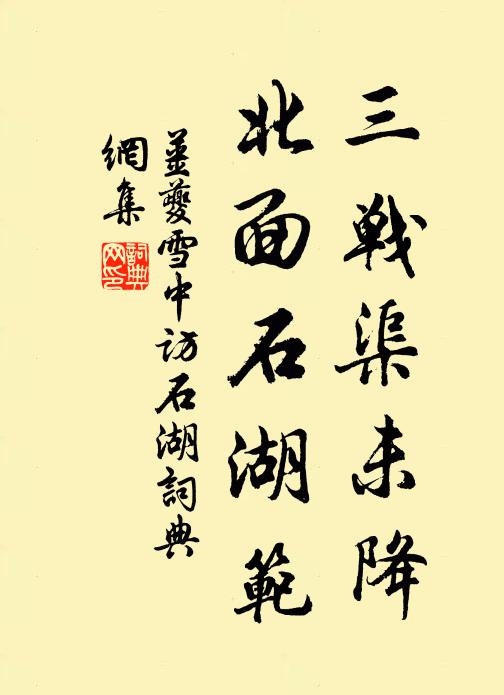 三戦渠未降
北面石湖範
姜夔雪中访石湖詞典
網集
詞典
网印